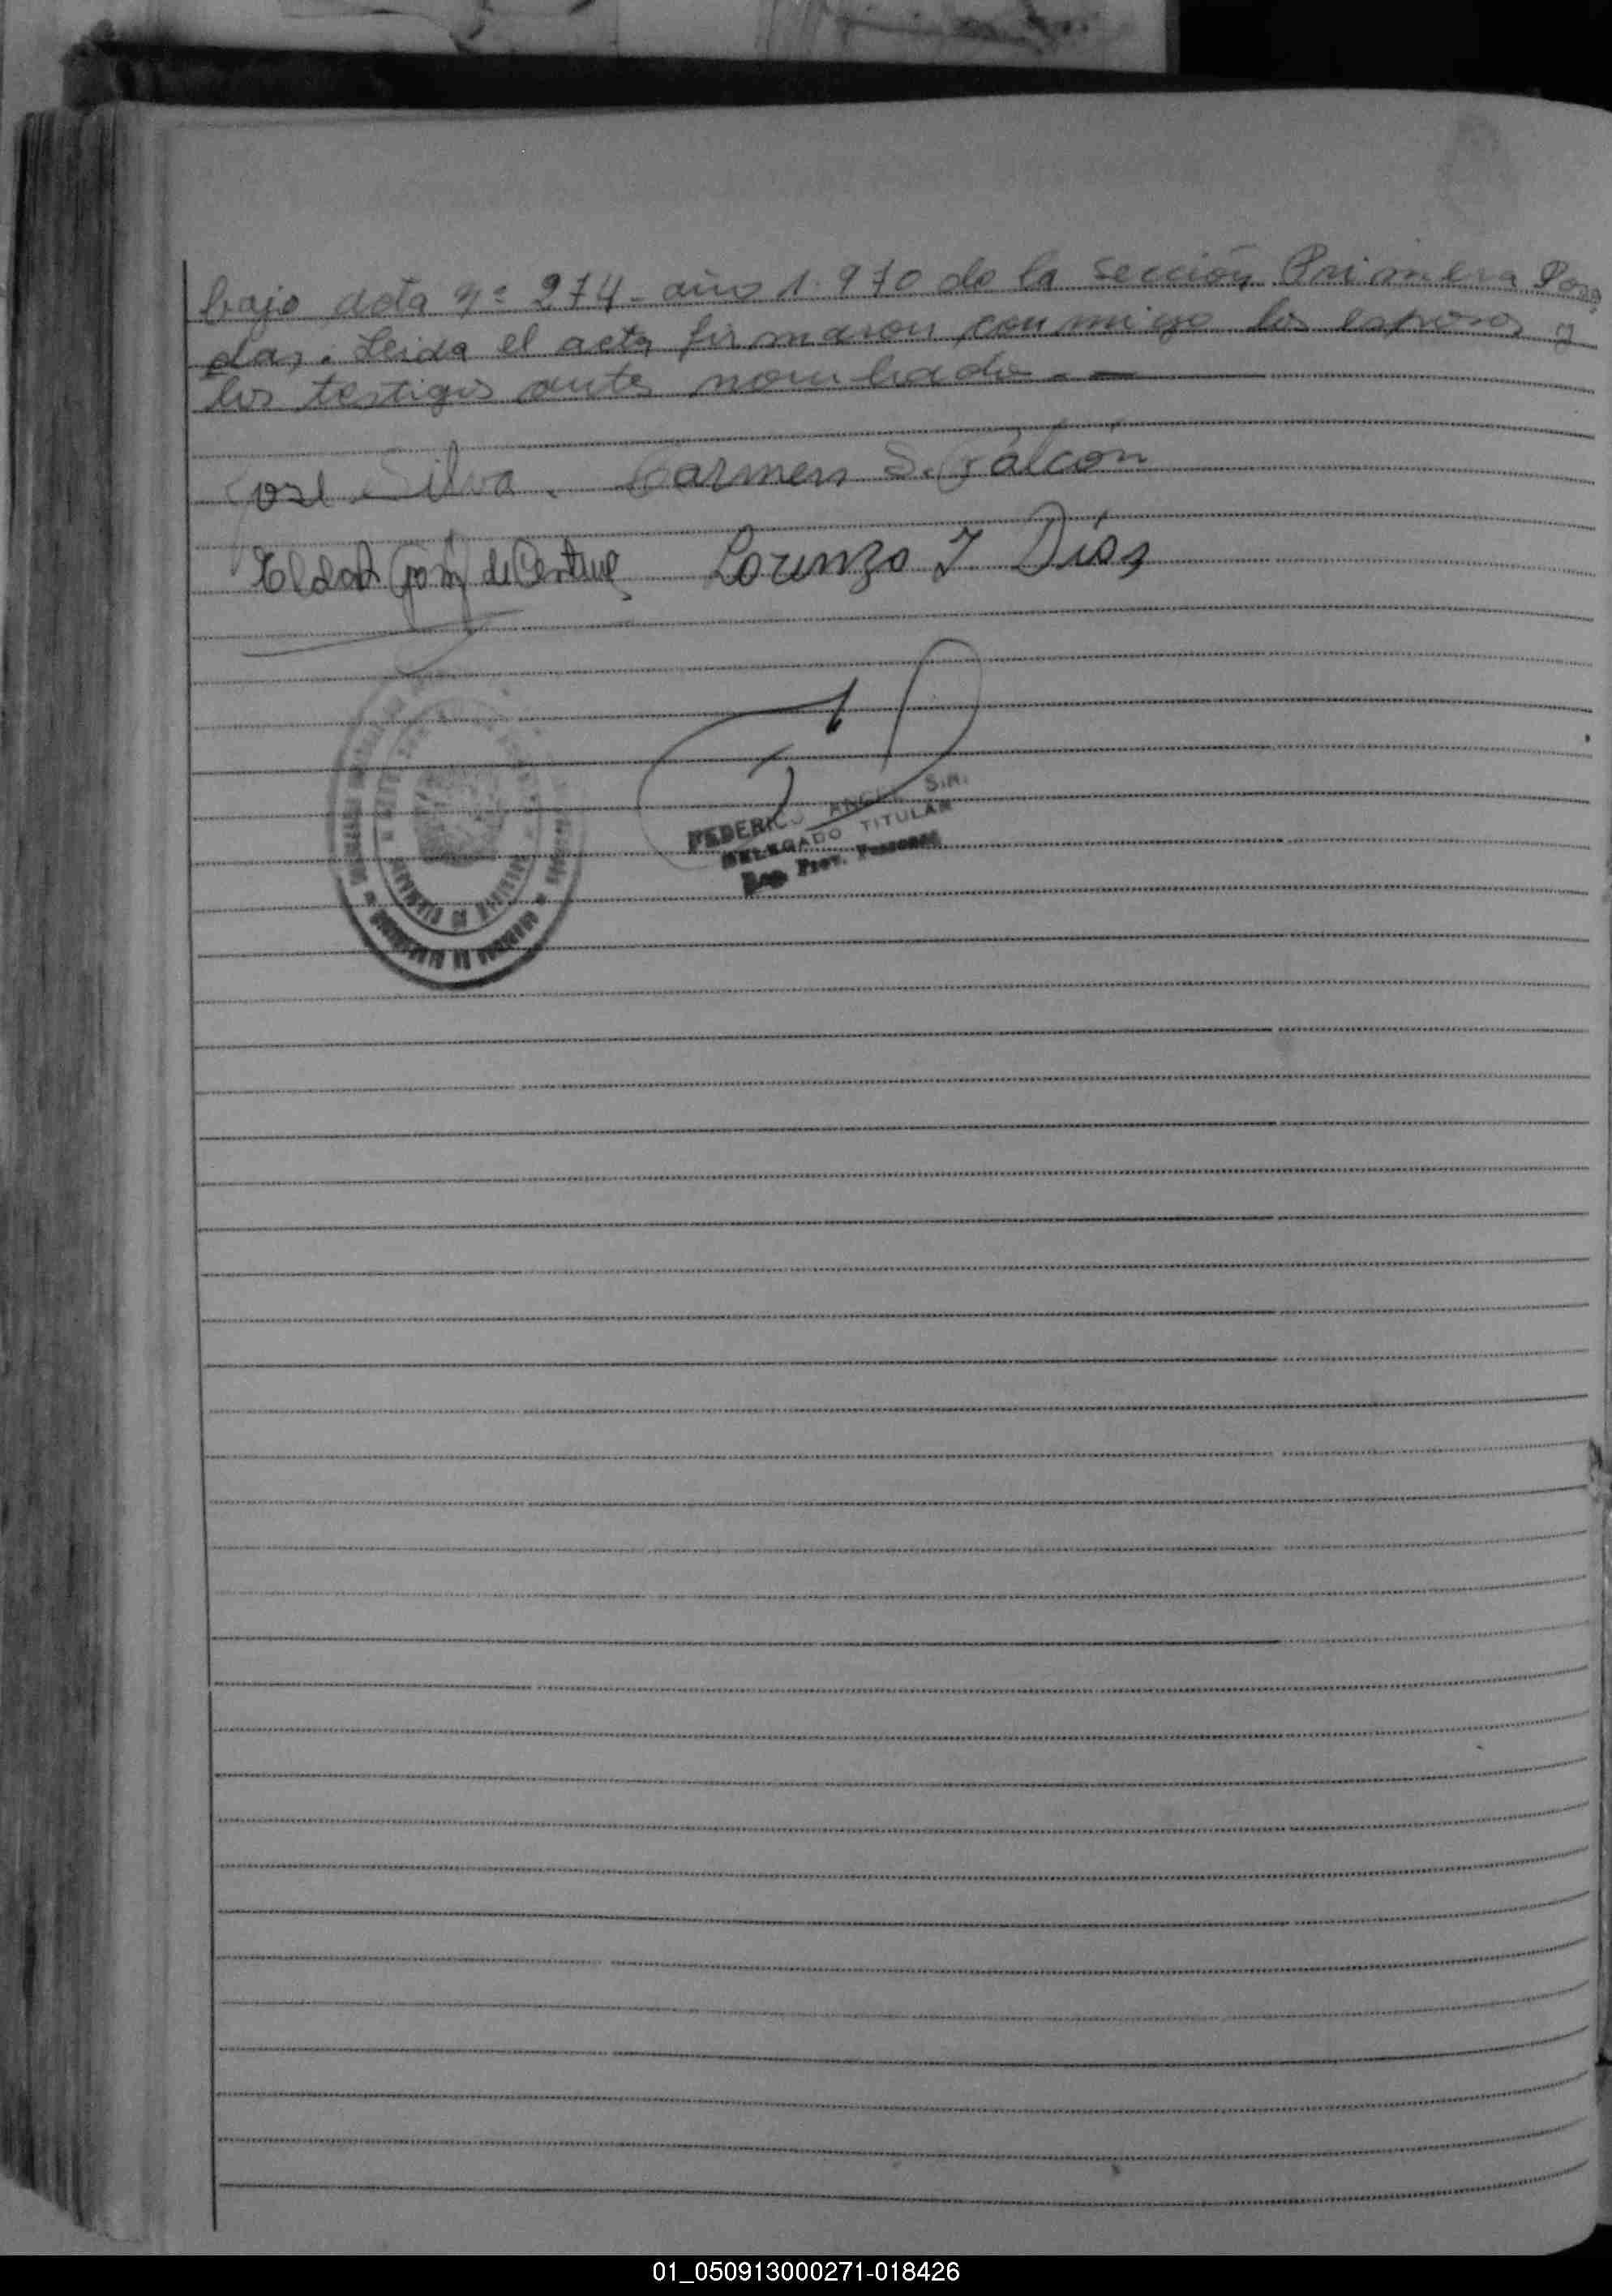 bajo acta nº 274 - año 1.970 de la Sección Primera Posa
das. Leida el acta firmaron conmigo los esposos y
los testigos antes nombrado. -
José Silva. Carmen S. Falcón
Lorenzo I Dias
FEDERICO ANGEL S.R.
DELEGADO TITULAR
Reg. Prov. Personas
01_050913000271-018426